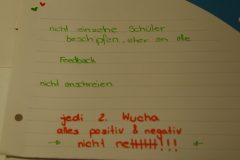 nicht einzelne Schüler
beschipfen, aber an alle
Feedback
nicht anschreien
jedi 2. Wucha
alles positiv & negativ
nicht nettttttt!!!